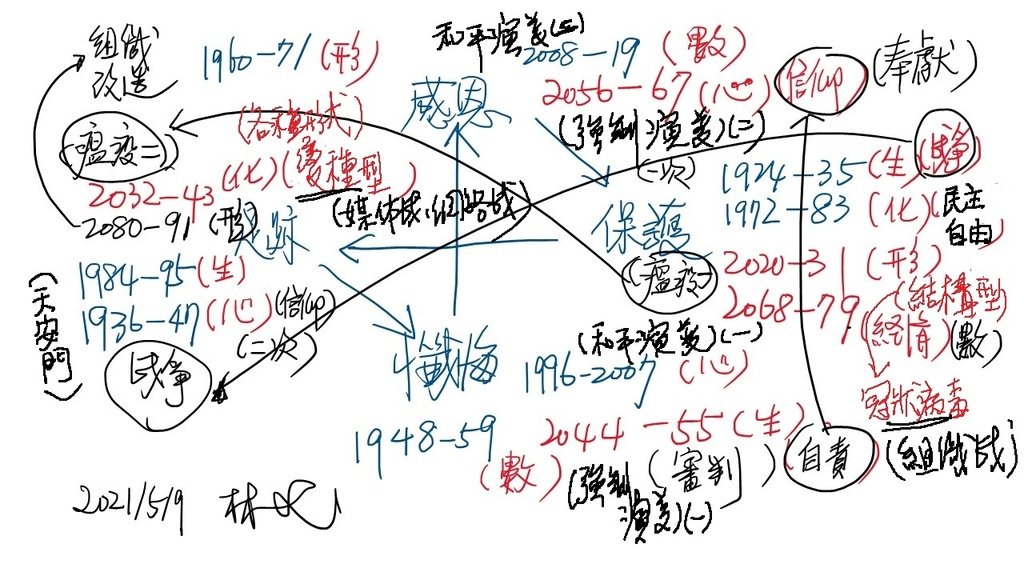 組織
改造
1960-71(形)
和平演義(二)
2008-19(數)
2056-67(心)
信仰
(奉獻)
感恩
瘟疫二
(各種形式)
(強制演義)(二)
(一次)
1924-35(生)
1972-83(化)
民主
自由
2032-43(化)
2080-91(形)
保護
瘟疫一
2020-31(形)
2068-79(數)
(結構型)
冠狀病毒
1984-95(生)
1936-47(心)
(信仰)
(二次)
(天安門)
懺悔
(和平演義)(一)
1996-2007(心)
1948-59
(數)
2044-55(生)
(審判)
(強制
演義)(一)
自責
(組織戰)
2021/5/9